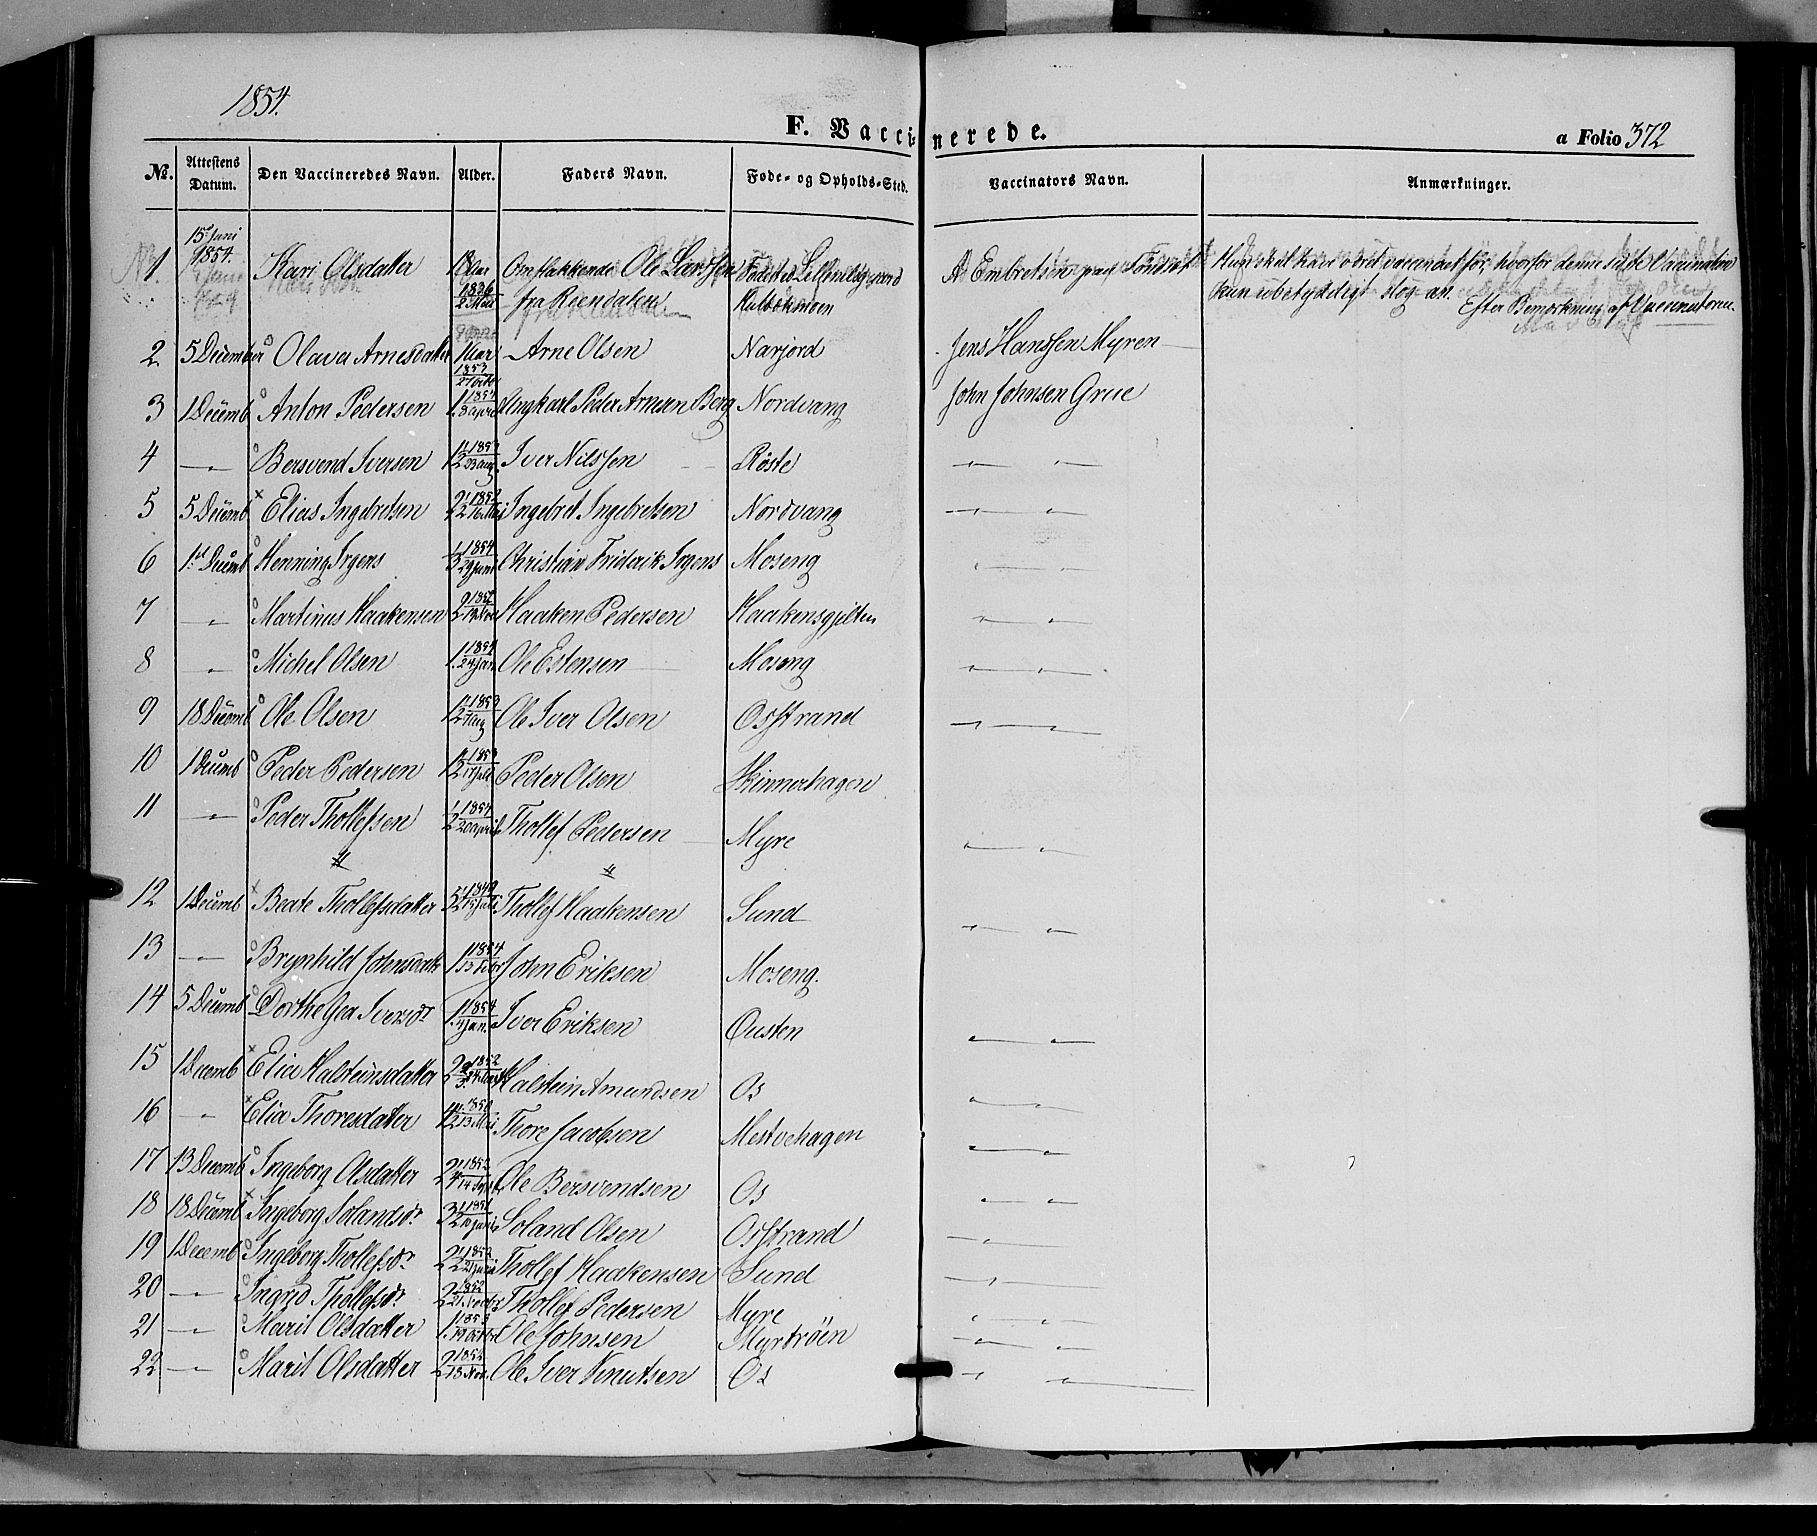 1854.
F. Vaccinerede.
a Folio 372
No. Attestens Datum. Den Vaccineredes Navn. Alder. Faders Navn. Føde- og Opholds-Sted. Vaccinators Navn. Anmærkninger.
1 15de Juni 1854. Kari Olsdatter 18 Aar 1836 Omflakkende Ole Larssen fra Reendalen Embretsen Hun skal have været vaccineret før, hvorfor denne sidste Vaccination
kun ubetydeligt slog an. Efter Bemærkning af Vaccinatoren.
2 5 December Olava Arnesdatter 1 Aar 1853 Arne Olsen Narjord Jens Hanssen Myren
3 1 Decemb Anton Pedersen 1 1854 3 april Ungkarl Peder Arnesen Berg Nordvang John Johnsen Grue
4 -"- Bersvend Iversen 1853 23 aug Iver Nilssen Røste -"- -"-
5 5 Decemb Elias Ingebretsen 2 1852 16 Ingebret Ingebretsen Nordvang -"- -"-
6 1st Decemb Henning Irgens 1854 29 Juni Christian Friderik Irgens Moseng -"- -"-
7 " Martinus Haakensen 2 Haaken Pedersen Haakensgjelten -"- -"-
8 " Michel Olsen 1 1854 24 Jan. Ole Estensen Moseng -"- -"-
9 18 Decemb Ole Olsen 1 1853 aug Ole Iver Olsen Osstrand -"- -"-
10 1 Decemb Peder Pedersen 1 1853 17 Juli Peder Olsen Skinnerhagen
11 -"- Peder Thollefsen 1854 20 april Thollef Pedersen Myre -"- -"-
12 1 Decemb Beate Thollefsdatter 5 1849 Juli Thollef Haakensen Sund -"- -"-
13 -"- Brynhild Johnsdatter 1 1854 13 Febr John Eriksen Moseng.
14 5 Decemb Dorthe Gea Iversdr 1 1854 4 Jan. Iver Eriksen Ousten -"- -"-
15 1 Decemb Elia Halsteinsdatter 2 1852 Halstein Amundsen Os -"- -"-
16 " Elia Thoresdatter 4 1850 13 Mai Thore Jacobsen Mestvehagen -"- -"-
17 13 Decemb Ingeborg Olsdatter 2 1852 14 Sept Ole Bersvendsen Os -"- -"-
18 18 Decemb Ingeborg Solandsdr 3 1851 10 Juni Soland Olsen Osstrand -"- -"-
19 1 Decemb Ingeborg Thollefsdr 2 1852 21 Juni Thollef Haakensen Sund -"- -"-
20 -"- Ingrid Thollefsdr 2 1852 21 Thollef Pedersen Myre -"- -"-
21 -"- Marit Olsdatter 1 1853 19 Octbr Ole Johnsen Myrtrøen -"- -"-
22 -"- Marit Olsdatter 2 1852 18 Nov. Ole Iver Knutsen Os -"- -"-